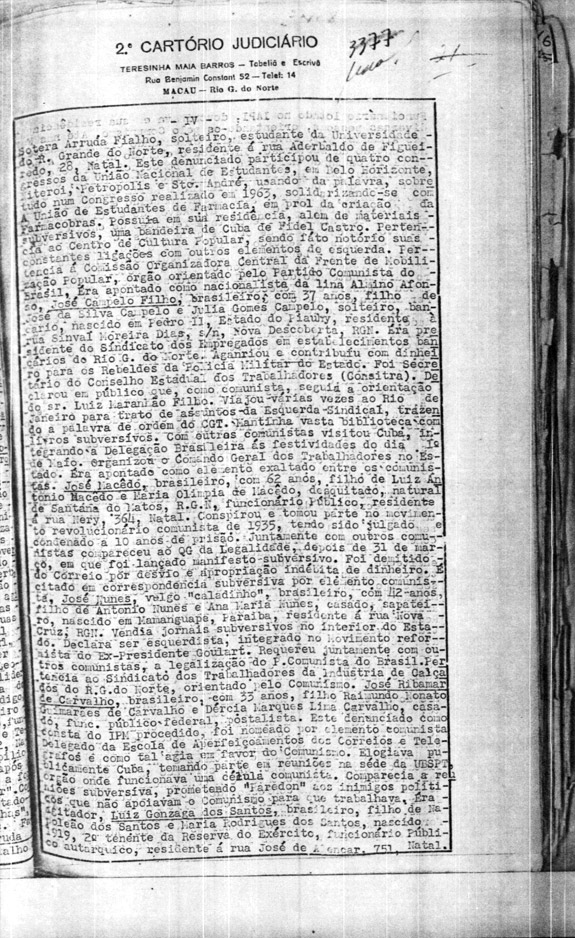 2.º CARTÓRIO JUDICIÁRIO
3377
TERESINHA MAIA BARROS — Tabeliã e Escrivã
Rua Benjamin Constant 52 — Telef: 14
MACAU — Rio G. do Norte
- IV -
Sotera Arruda Fialho, solteiro, estudante da Universidade
do R. Grande do Norte, residente á rua Aderbaldo de Figuei-
redo, 28, Natal. Este denunciado participou de quatro con-
gressos da União Nacional de Estudantes, em Belo Horizonte,
Niteroi, Petropolis e Sto. André, usando da palavra, sobre
tudo num Congresso realizado em 1963, solidarizando-se com
A União de Estudantes de Farmacia, em prol da criação da
Farmacobras. Possuia em sua residencia, alem de materiais
subversivos, uma bandeira de Cuba de Fidel Castro. Perten-
cia ao Centro de Cultura Popular, sendo fato notório suas
constantes ligações com outros elementos de esquerda. Per-
tencia á Comissão Organizafora Central da Frente de Mobili-
zação Popular, órgão orientado pelo Partido Comunista do
Brasil. Era apontado como nacionalista da lina Almino Afon-
so, José Campelo Filho, brasileiro, com 37 anos, filho de
José da Silva Campelo e Julia Gomes Campelo, solteiro, ban-
cario, nascido em Pedro II, Estado do Piauhy, residente á
rua Sinval Moreira Dias, s/n, Nova Descoberta, RGN. Era pre
sidente do Sindicato dos Empregados em estabelecimentos ban
cários do Rio G. do Norte. Aganriou e contribuiu com dinhei
ro para os Rebeldes da Policia Militar do Estado. Foi Secre
tário do Conselho Estadual dos Trabalhadores (Consitra). De
clarou em público que, como comunista, seguia a orientação
do sr. Luiz Maranhão Filho. Viajou várias vezes ao Rio de
Janeiro para trato de assuntos da Esquerda-Sindical, trazen
do a palavra de ordem do CGT. Mantinha vasta biblioteca com
livros subversivos. Com outros comunistas visitou Cuba, in-
tegrando a Delegação Brasileira ás festividades do dia 1º
de Maio. Organizou o Comando Geral dos Trabalhadores no Es-
tado. Era apontado como elemento exaltado entre os comunis-
tas. José Macêdo, brasileiro, com 62 anos, filho de Luiz An
tonio Macedo e Maria Olimpia de Macêdo, desquitado, natural
de Santana do Matos, R.G.N, funcionário Público, residente
á rua Nery, 364, Natal. Conspirou e tomou parte no movimen-
to revolucionário comunista de 1935, tendo sido julgado e
condenado a 10 anos de prisão. Juntamente com outros comu-
nistas compareceu ao QG da Legalidade, depois de 31 de mar-
ço, em que foi lançado manifesto subversivo. Foi demitido
do Correio por desvio e apropriação indébita de dinheiro. É
citado em correspondencia subversiva por elemento comunis-
ta, José Nunes, vulgo "caladinho", brasileiro, com 42-anos,
filho de Antonio Nunes e Ana Maria Nunes, casado, sapatei-
ro, nascido em Mamanguape, Paraiba, residente á rua Nova
Cruz, RGN. Vendia jornais subversivos no interior do Esta-
dó. Declara ser esquerdista, integrado no Movimento refor-
mista do Ex-Presidente Goulart. Requereu juntamente com ou-
tros comunistas, a legalização do P.Comunista do Brasil.Per
tencia ao Sindicato dos Trabalhadores da Industria de Calça
dos do R.G.do Norte, orientado pelo Comunismo. José Ribamar
de Carvalho, brasileiro, com 35 anos, filho Raimundo Nonato
Guimarães de Carvalho e Dércia Marques Lima Carvalho, casa-
dó, func. público federal, postalista. Este denunciado como
consta do IPM procedido, foi nomeado por elemento comunista
Delegado da Escola de Aperfeiçoamento dos Correios e Telé-
grafos e como tal agia em favor do Comunismo. Elogiava pu-
blicamente Cuba, tomando parte em reuniões na séde da UBSPT,
órgão onde funcionava uma célula comunista. Comparecia a reu
niões subversiva, prometendo "Paredon" aos inimigos politi-
cos que não apoiavam o Comunismo para que trabalhava, Era
agitador, Luiz Gonzaga dos Santos, brasileiro, filho de Na-
poleão dos Santos e Maria Rodrigues dos Santos, nascido
1919, 2º tenente da Reserva do Exército, funcionário Públi-
co autarquico, residente á rua José de Alencar, 751, Natal.